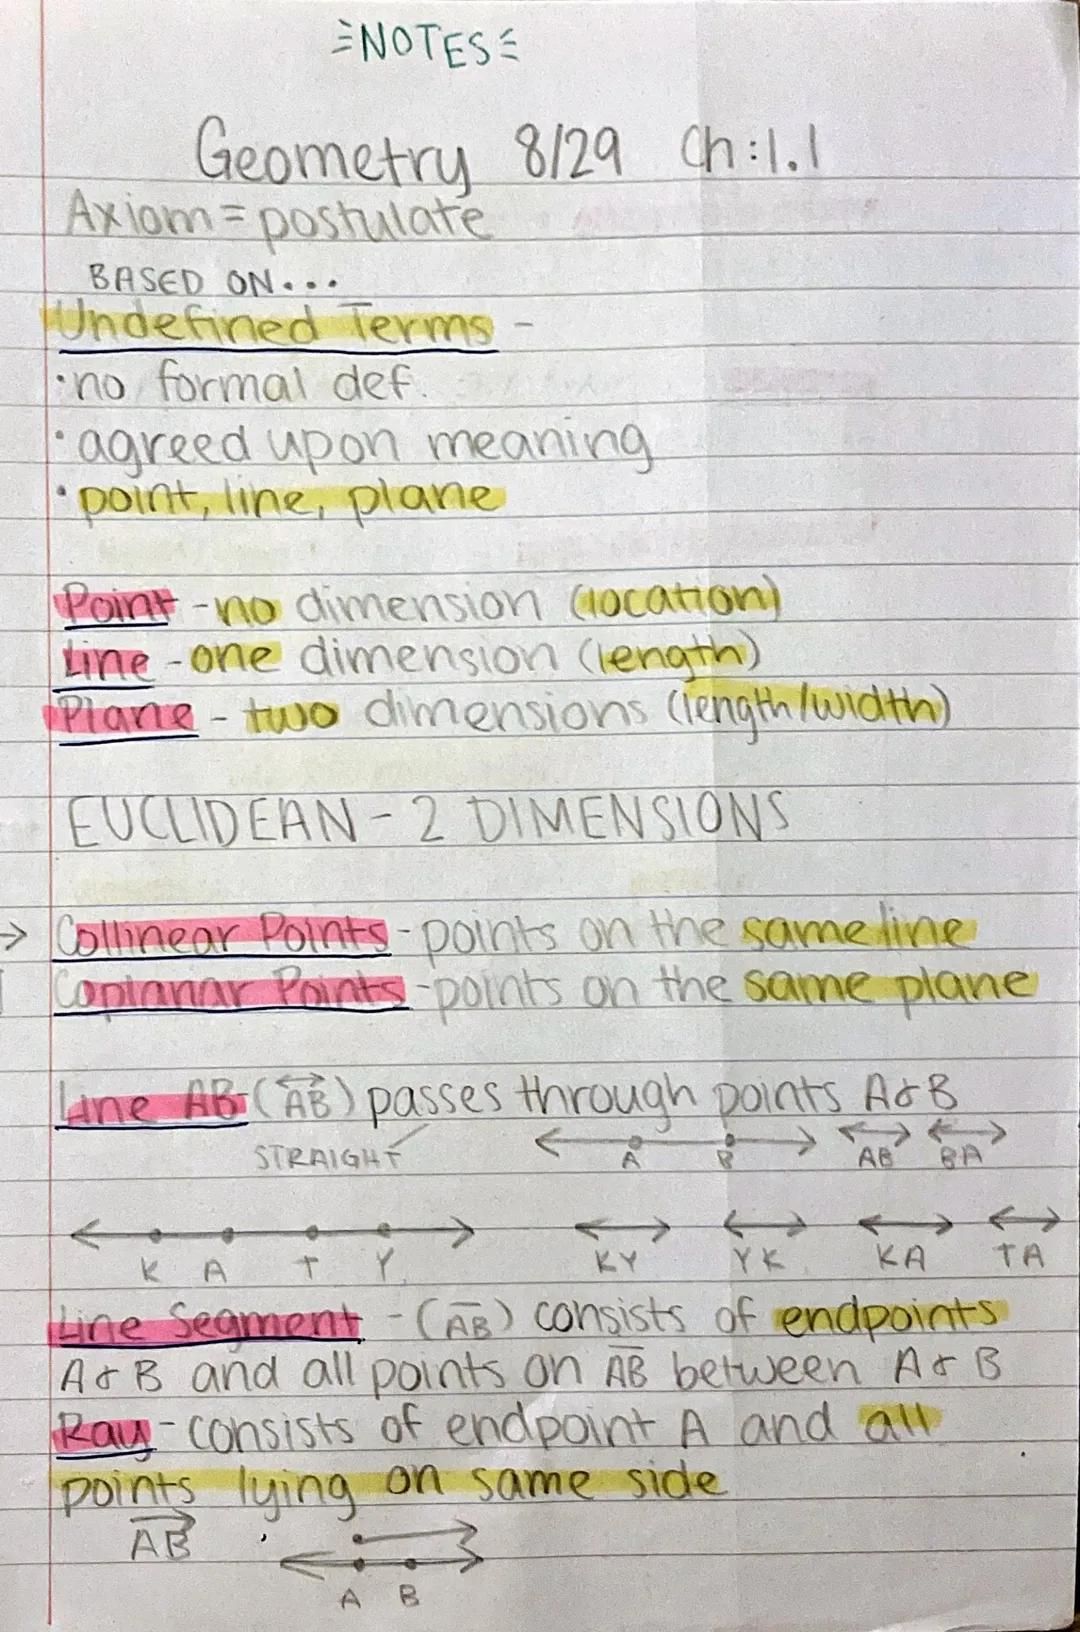 NOTES
Geometry 8/29 Ch:1.1
Axiom = postulate
BASED ON...
Undefined Terms -
·no formal def.
·agreed upon meaning
·point, line, plane
Point - no dimension (location)
Line - one dimension (length)
Plane - two dimensions (length/width)
EUCLIDEAN - 2 DIMENSIONS
→ Collinear Points - points on the same line
Coplanar Points - points on the same plane
Line AB - (AB) passes through points A & B
STRAIGHT A B AB BA
K A T Y KY YK KA TA
Line Segment - (AB) consists of endpoints
A & B and all points on AB between A & B
Ray - consists of endpoint A and all
points lying on same side
AB
A B